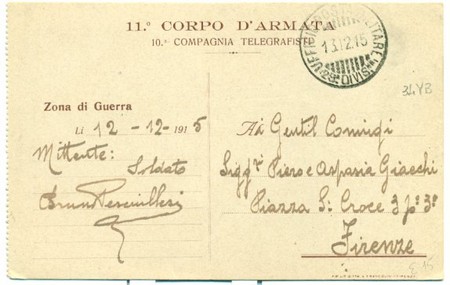 11.° CORPO D'ARMATA
10.a COMPAGNIA TELEGRAFISTI
UFFICIO POSTA MILITARE
13.12.15
DIVIS
34YB
Zona di Guerra
Li 12-12-1915
Mittente:
Soldato
Bruno
Ai Gentil Coniugi
Sigg.ri Piero e Aspasia Giacchi
Piazza S: Croce 3 p.° 3°
Firenze
£ 15